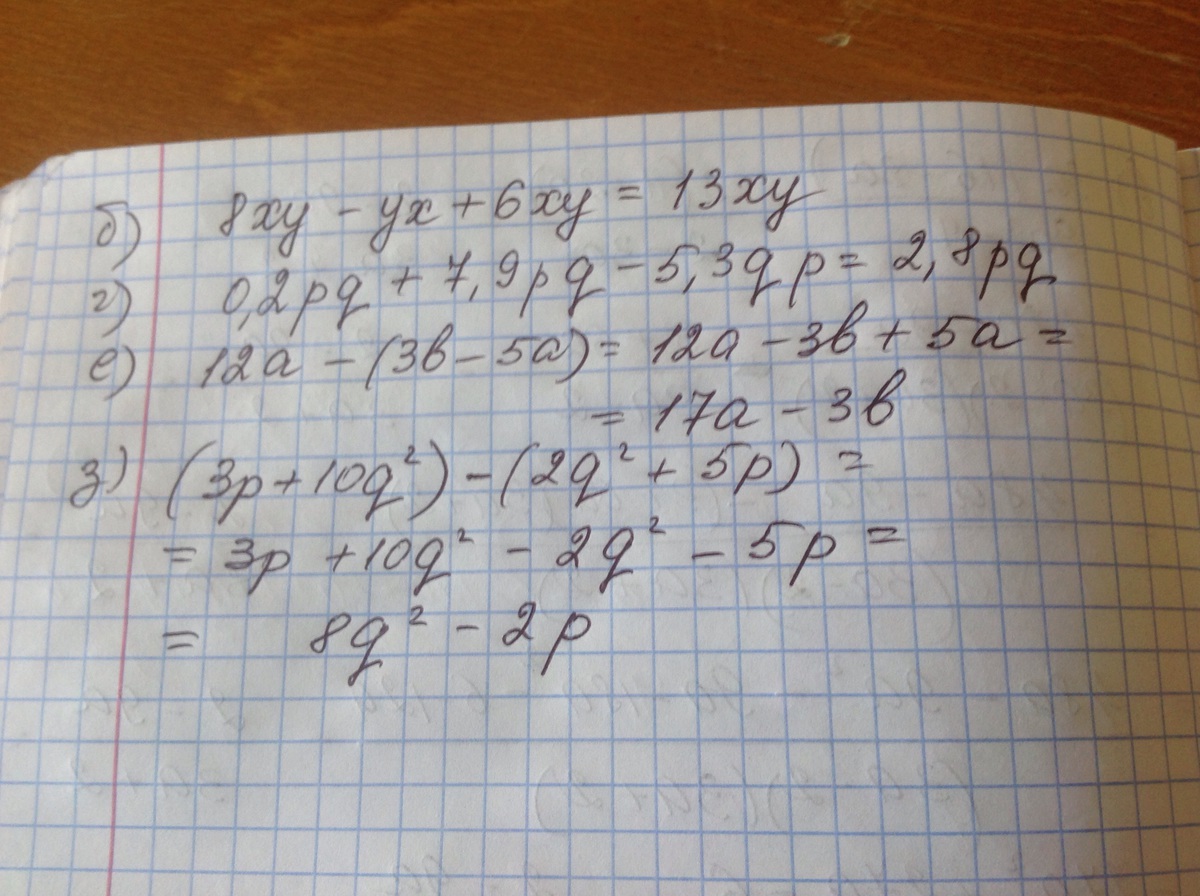 б) 8xy - yx + 6xy = 13xy
г) 0,2pq + 7,9pq - 5,3qp = 2,8pq
е) 12a - (3b - 5a) = 12a - 3b + 5a =
= 17a - 3b
з) (3p + 10q²) - (2q² + 5p) =
= 3p + 10q² - 2q² - 5p =
= 8q² - 2p